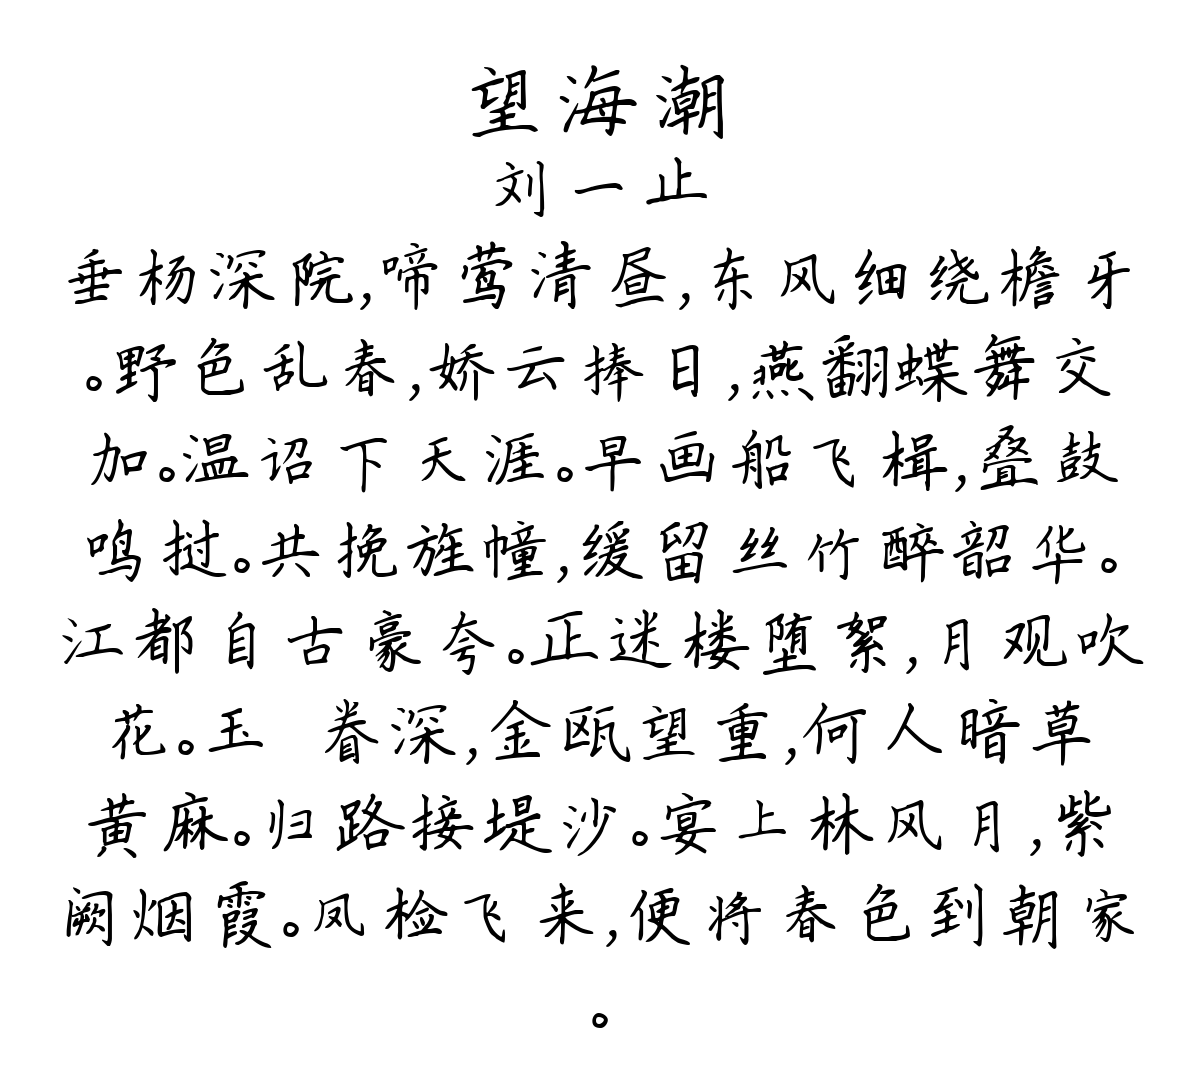 望海潮
刘一止
垂杨深院,啼莺清昼,东风细绕檐牙
。野色乱春,娇云捧日,燕翻蝶舞交
加。温诏下天涯。早画船飞楫,叠鼓
鸣挝。共挽旌幢,缓留丝竹醉韶华。
江都自古豪夸。正迷楼堕絮,月观吹
花。玉 眷深,金瓯望重,何人暗草
黄麻。归路接堤沙。宴上林风月,紫
阙烟霞。凤检飞来,便将春色到朝家
。